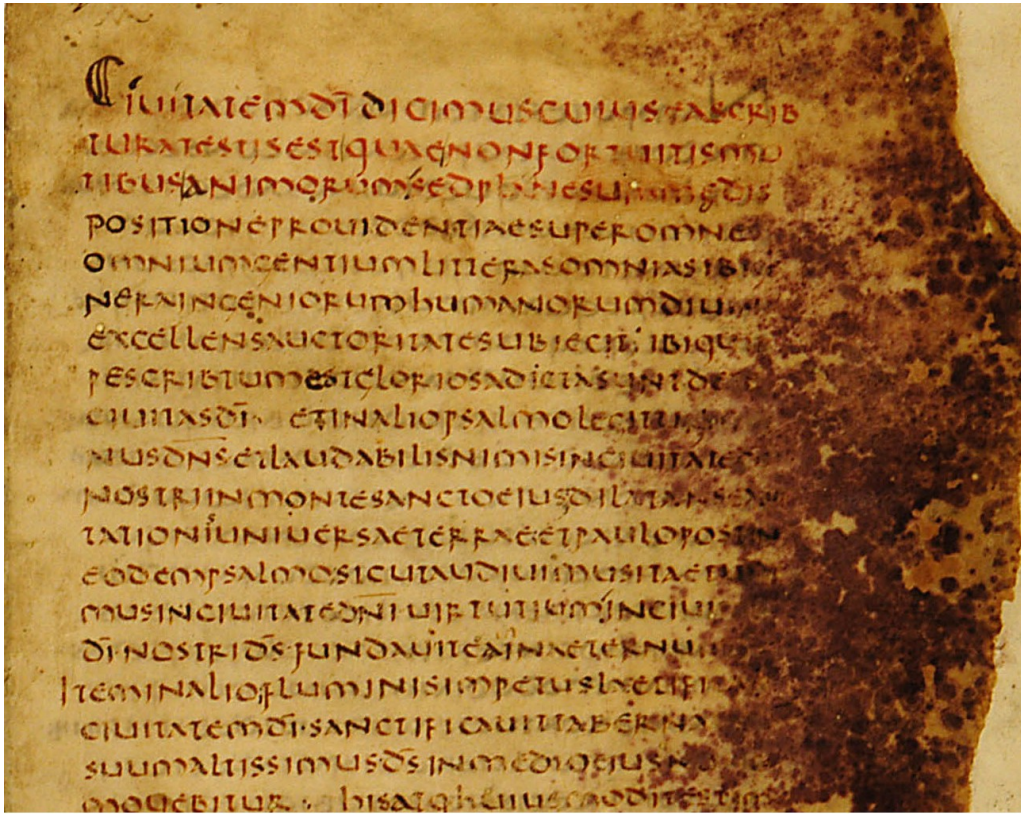 CIUITATEMDI DICIMUSCUIUSEASCRIB
TURATESTISESTQUAENONFORTUITISMO
TIBUSANIMORUMSEDPLANESUMMAEDIS
POSITIONEPROUIDENTIAESUPEROMNES
OMNIUMGENTIUMLITTERASOMNIASIBI
NERAINGENIORUMHUMANORUMDIUI
EXCELLENSAUCTORITATESUBIECIT, IBIQU
PESCRIBTUMESTGLORIOSADICTASUNTDE
CIUITASDI· ETINALIOPSALMOLEGITUR
NUSDNSETLAUDABILISNIMISINCIUITATED
NOSTRIINMONTESANCTOEIUSDILATANSEX
TATIONIUNIUERSAETERRAE·ETPAULOPOSTIN
EODEMPSALMOSICUTAUDIUIMUSITAETUIDI
MUSINCIUITATEDNIUIRTUTIUMINCIUI
DI·NOSTRIDS·FUNDAUITEAINAETERNUM
ITEMINALIOFLUMINISIMPETUSLAETIFI
CIUITATEMDI·SANCTIFICAUITTABERNA
SUUMALTISSIMUSDSINMEDIOEIUSN
MOUEBITUR · HISATQHUIUSMODITESTIM